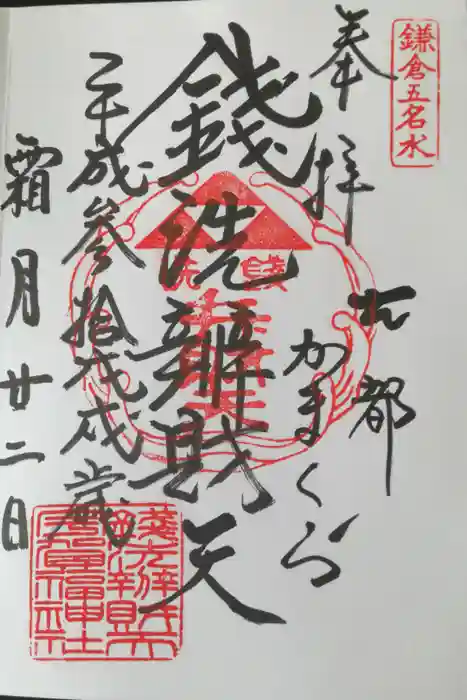 鎌倉五名水
奉拝
古都
かまくら
錢洗辨財天
平成参拾戊戌歳
霜月廿二日